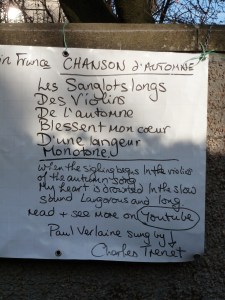 in France CHANSON d'AUTOMNE
Les Sanglots longs
Des Violins
De L'automne
Blessent mon cœur
D'une langeur
Monotone
when the sighing begins In the violins
of the autumn song
My heart is drowned In the slow
sound Langorous and long.
read + see more on Youtube
Paul Verlaine sung by
Charles Trenet